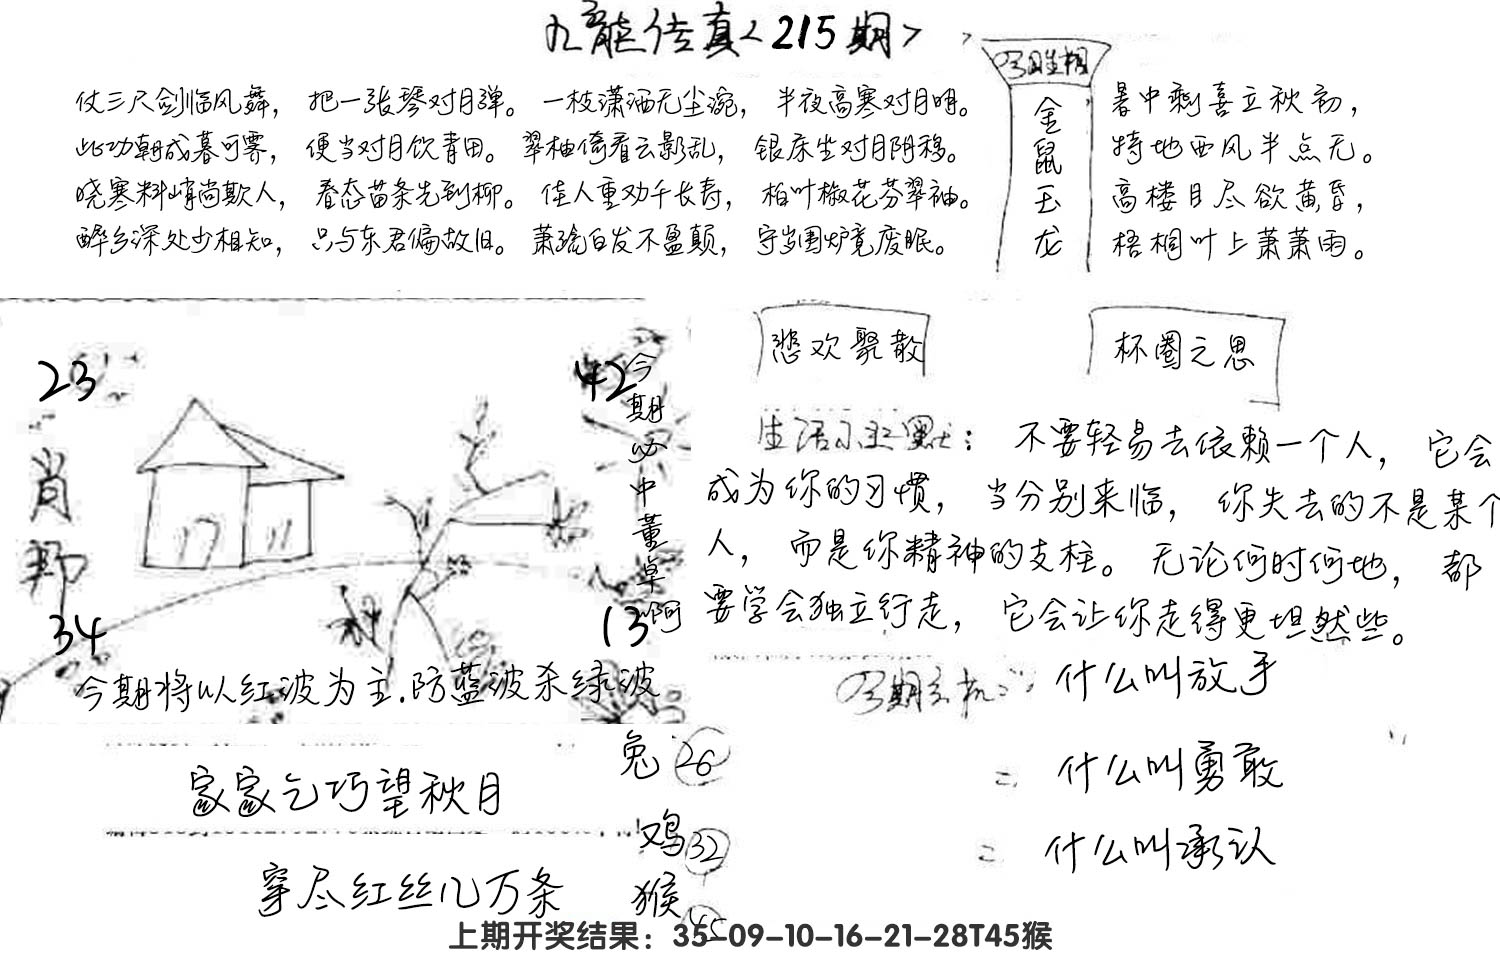 九龙传真<215期>
仗三尺剑临风舞，把一张琴对月弹。一枝潇洒无尘涴，半夜高寒对月明。
此功朝成暮可霁，便当对月饮青田。翠柚倚看云影乱，银床坐对月阴移。
晓寒料峭尚欺人，春态苗条先到柳。佳人重劝千长寿，柏叶椒花芬翠袖。
醉乡深处少相知，只与东君偏故旧。萧疏白发不盈颠，守岁围炉竟废眠。
今期生相
金鼠玉龙
暑中剩喜立秋初，
特地西风半点无。
高楼目尽欲黄昏，
梧桐叶上萧萧雨。
23
42
肖
34
13
今期必中董卓啊
今期将以红波为主.防蓝波杀绿波
悲欢聚散
杯圈之思
不要轻易去依赖一个人，它会
成为你的习惯，当分别来临，你失去的不是某个
人，而是你精神的支柱。无论何时何地，都
要学会独立行走，它会让你走得更坦然些。
今期玄机:
什么叫放手
二 什么叫勇敢
二 什么叫承认
家家乞巧望秋月
穿尽红丝几万条
兔 26
鸡 32
猴 45
上期开奖结果：35-09-10-16-21-28T45猴